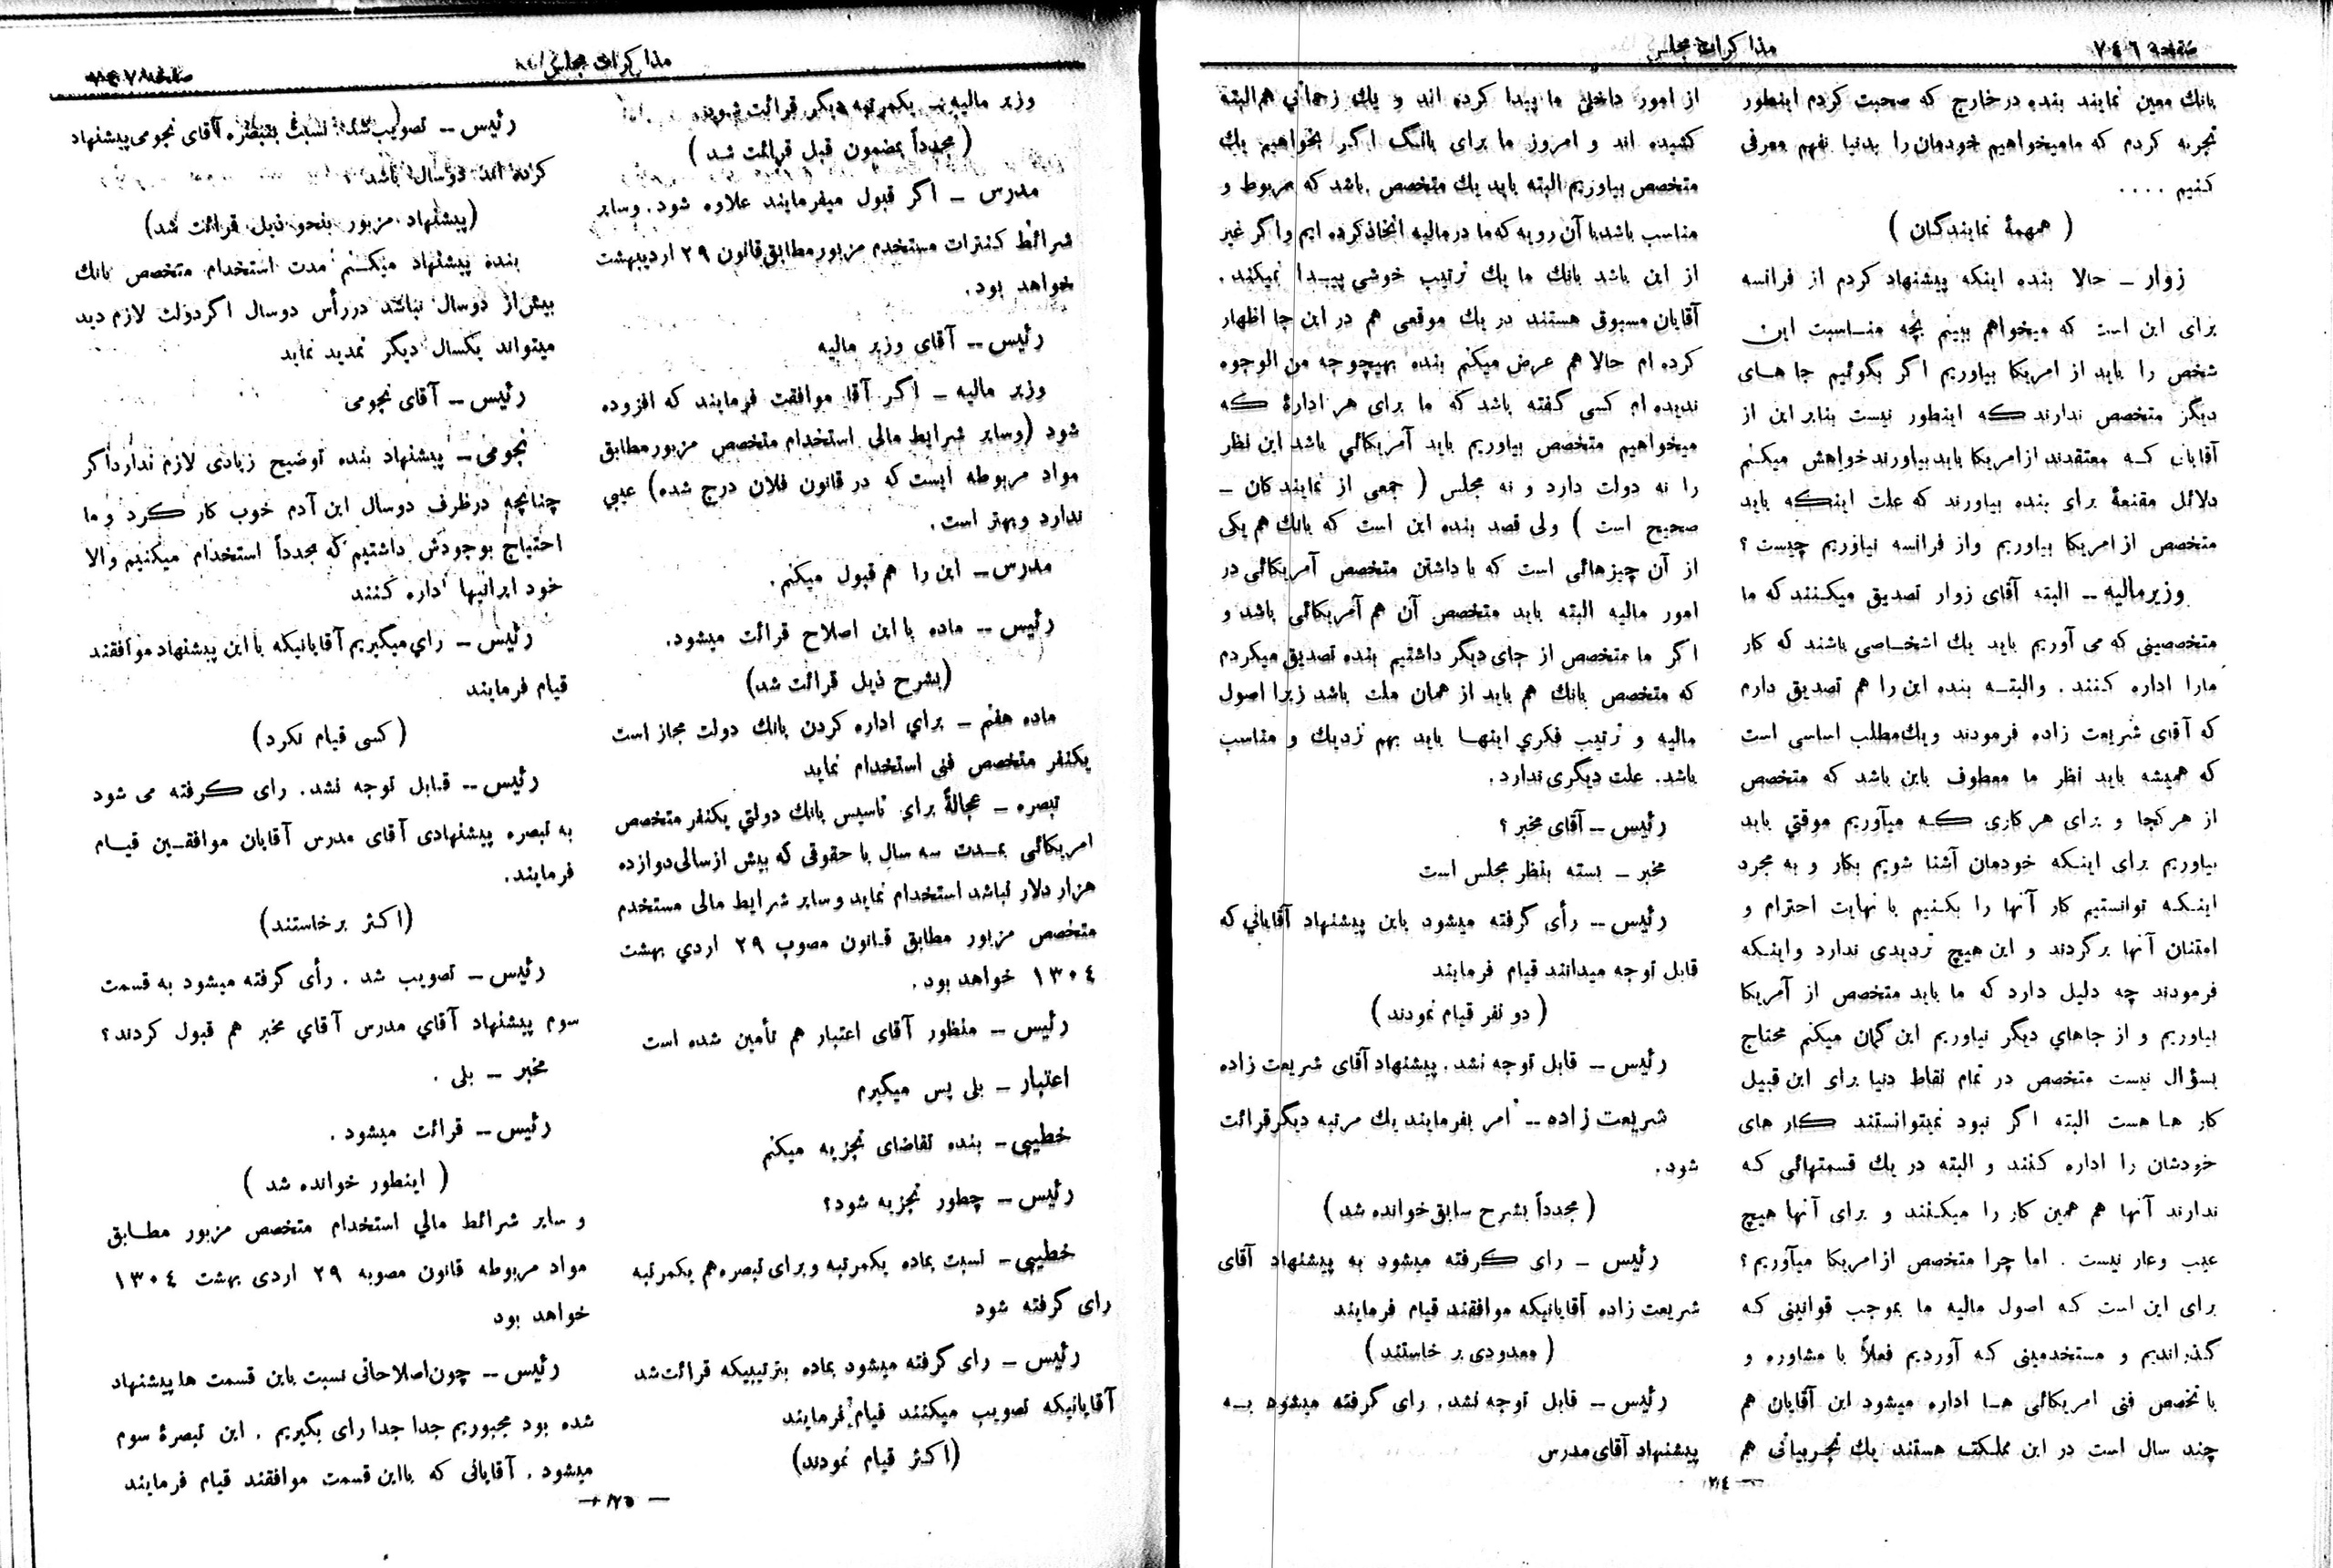 صفحه ٧٤٦
مذاکرات مجلس
بانك معین نمایند بنده در خارج که صحبت کردم اینطور
تجربه کردم که مامیخواهیم خودمان را بدنیا نفهم معرفی
کنیم ....
( همهمهٔ نمایندگان )
زوار ــ حالا بنده اینکه پیشنهاد کردم از فرانسه
برای این است که میخواهم ببینم بچه منـاسبت این
شخص را باید از امریکا بیاوریم اگر بگوئیم جاهـای
دیگر متخصص ندارند که اینطور نیست بنابر این از
آقایان کـه معتقدند ازامریکا باید بیاورند خواهش میکـنم
دلائل مقنعهٔ برای بنده بیاورند که علت اینکه باید
متخصص از امریکا بیاوریم واز فرانسه نیاوریم چیست ؟
وزیرمالیه ــ البته آقای زوار تصدیق میکـنند که ما
متخصصینی که می آوریم باید یك اشخـاصی باشند که کار
مارا اداره کـنند . والبتـه بنده این را هم تصدیق دارم
که آقای شریعت زاده فرمودند ویك مطلب اساسی است
که همیشه باید نظر ما معطوف باین باشد که متخصص
از هرکجا و برای هرکاری کـه میآوریم موقتي باید
بیاوریم برای اینـکه خودمان آشنا شویم بکار و به مجرد
اینـکـه توانستیم کار آنها را بکـنیم با نهایت احترام و
امتنان آنها برگردند و این هیچ تردیدی ندارد واینـکه
فرمودند چه دلیل دارد که ما باید متخصص از آمریکا
بیاوریم و از جاهاي دیگر نیاوریم این گمان میکنم محتاج
بسؤال نیست متخصص در تمام نقاط دنیا برای این قبیل
کار ها هست البته اگر نبود نمیتوانستند کار های
خودشان را اداره کنند و البته در یك قسمتهائی کـه
ندارند آنها هم همین کار را میکـنند و برای آنها هیچ
عیب وعار نیست . اما چرا متخصص ازامریکا میآوریم ؟
برای این است کـه اصول مالیه ما بموجب قوانینی کـه
گذراندیم و مستخدمینی کـه آوردیم فعلاً با مشاوره و
با تخصص فنی امریکائی هـا اداره میشود این آقایان هم
چند سال است در این مملکت هستند یك تجربیاتی هم
از امور داخلی ما پیدا کرده اند و یك زحماتي هم البته
کشیده اند و امروز ما برای بانگ اگر بخواهیم یك
متخصص بیاوریم البته باید یك متخصص باشد که مربوط و
مناسب باشد با آن رویه که ما درمالیه اتخاذ کرده ایم واگر غیر
از این باشد بانك ما یك ترتیب خوشی پیـدا نمیکند .
آقایان مسبوق هستند در یك موقعی هم در این جا اظهار
کرده ام حالا هم عرض میکنم بنده بهیچوجه من الوجوه
ندیده ام کسی گفته باشد که ما برای هر ادارهٔ که
میخواهیم متخصص بیاوریم باید آمریکائي باشد این نظر
را نه دولت دارد و نه مجلس ( جمعی از نمایندکان ــ
صحیح است ) ولی قصد بنده این است که بانك هم یکی
از آن چیزهائی است که با داشتن متخصص آمریکائی در
امور مالیه البته باید متخصص آن هم آمریکائی باشد و
اگر ما متخصص از جای دیگر داشتیم بنده تصدیق میکردم
که متخصص بانك هم باید از همان ملت باشد زیرا اصول
مالیه و ترتیب فکري اینهـا باید بهم نزدیك و مناسب
باشد. علت دیگری ندارد.
رئیس ــ آقای مخبر ؟
مخبر ــ بسته بنظر مجلس است
رئیس ــ رأی گرفته میشود باین پیشنهاد آقایاني که
قابل توجه میدانند قیام فرمایند
( دو نفر قیام نمودند )
رئیس ــ قابل توجه نشد . پیشنهاد آقای شریعت زاده
شریعت زاده ــ امر بفرمایند یك مرتبه دیگر قرائت
شود.
( مجدداً بشرح سابق خوانده شد )
رئیس ــ رای گرفته میشود به پیشنهاد آقای
شریعت زاده آقایانیکه موافقند قیام فرمایند
( معدودی بر خاستند )
رئیس ــ قابل توجه نشد. رای گرفته میشود بـه
پیشنهاد آقای مدرس
مذاکرات مجلس
وزیر مالیه ــ یکمرتبه دیگر قرائت شود.
( مجدداً بمضمون قبل قرائت شد )
مدرس ــ اگر قبول میفرمایند علاوه شود. وسایر
شرائط کنترات مستخدم مزبور مطابق قانون ٢٩ اردیبهشت
خواهد بود.
رئیس ــ آقای وزیر مالیه
وزیر مالیه ــ اگر آقا موافقت فرمایند که افزوده
شود (وسایر شرایط مالی استخدام متخصص مزبور مطابق
مواد مربوطه ایست که در قانون فلان درج شده) عیبي
ندارد وبهتر است.
مدرس ــ این را هم قبول میکنم.
رئیس ــ ماده با این اصلاح قرائت میشود.
(بشرح ذیل قرائت شد)
ماده هفتم ــ براي اداره کردن بانك دولت مجاز است
یکنفر متخصص فنی استخدام نماید
تبصره ــ عجالةً براي تاسیس بانك دولتي یکنفر متخصص
امریکائی بمـدت سه سال با حقوقی که بیش از سالی دوازده
هزار دلار نباشد استخدام نماید و سایر شرایط مالی مستخدم
متخصص مزبور مطابق قانون مصوب ٢٩ اردي بهشت
١٣٠٤ خواهد بود.
رئیس ــ منظور آقای اعتبار هم تأمین شده است
اعتبار ــ بلی پس میگیرم
خطیبی ــ بنده تقاضای تجزیه میکنم
رئیس ــ چطور تجزیه شود؟
خطیبی ــ نسبت بماده یکمرتبه وبرای تبصره هم یکمرتبه
رای گرفته شود
رئیس ــ رای گرفته میشود بماده بترتیبیکه قرائت شد
آقایانیکه تصویب میکنند قیام فرمایند
(اکثر قیام نمودند)
رئیس ــ تصویب شد. نسبت بتبصره آقای نجومی پیشنهاد
کرده اند دوسال باشد .
(پیشنهاد مزبور بنحو ذیل قرائت شد)
بنده پیشنهاد میکـنم مدت استخدام متخصص بانك
بیش از دوسال نباشد دررأس دوسال اگر دولت لازم دید
میتواند یکسال دیگر تمدید نماید
رئیس ــ آقای نجومی
نجومی ــ پیشنهاد بنده توضیح زیادی لازم ندارد اگر
چنانچه درظرف دوسال این آدم خوب کار کرد وما
احتیاج بوجودش داشتیم که مجدداً استخدام میکنیم والا
خود ایرانیها اداره کنند
رئیس ــ راي میگیریم آقایانیکه با این پیشنهاد موافقند
قیام فرمایند
( کسی قیام نکرد)
رئیس ــ قـابل توجه نشد. رای گرفته می شود
به تبصره پیشنهادی آقای مدرس آقایان موافقـین قیـام
فرمایند.
(اکثر برخاستند)
رئیس ــ تصویب شد . رأی گرفته میشود به قسمت
سوم پیشنهاد آقاي مدرس آقاي مخبر هم قبول کردند ؟
مخبر ــ بلی .
رئیس ــ قرائت میشود .
( اینطور خوانده شد )
و سایر شرائط مالي استخدام متخصص مزبور مطـابق
مواد مربوطه قانون مصوبه ٢٩ اردی بهشت ١٣٠٤
خواهد بود
رئیس ــ چون اصلاحاتی نسبت باین قسمت ها پیشنهاد
شده بود مجبوریم جدا جدا رای بگیریم . این تبصرهٔ سوم
میشود . آقایانی که بااین قسمت موافقند قیام فرمایند